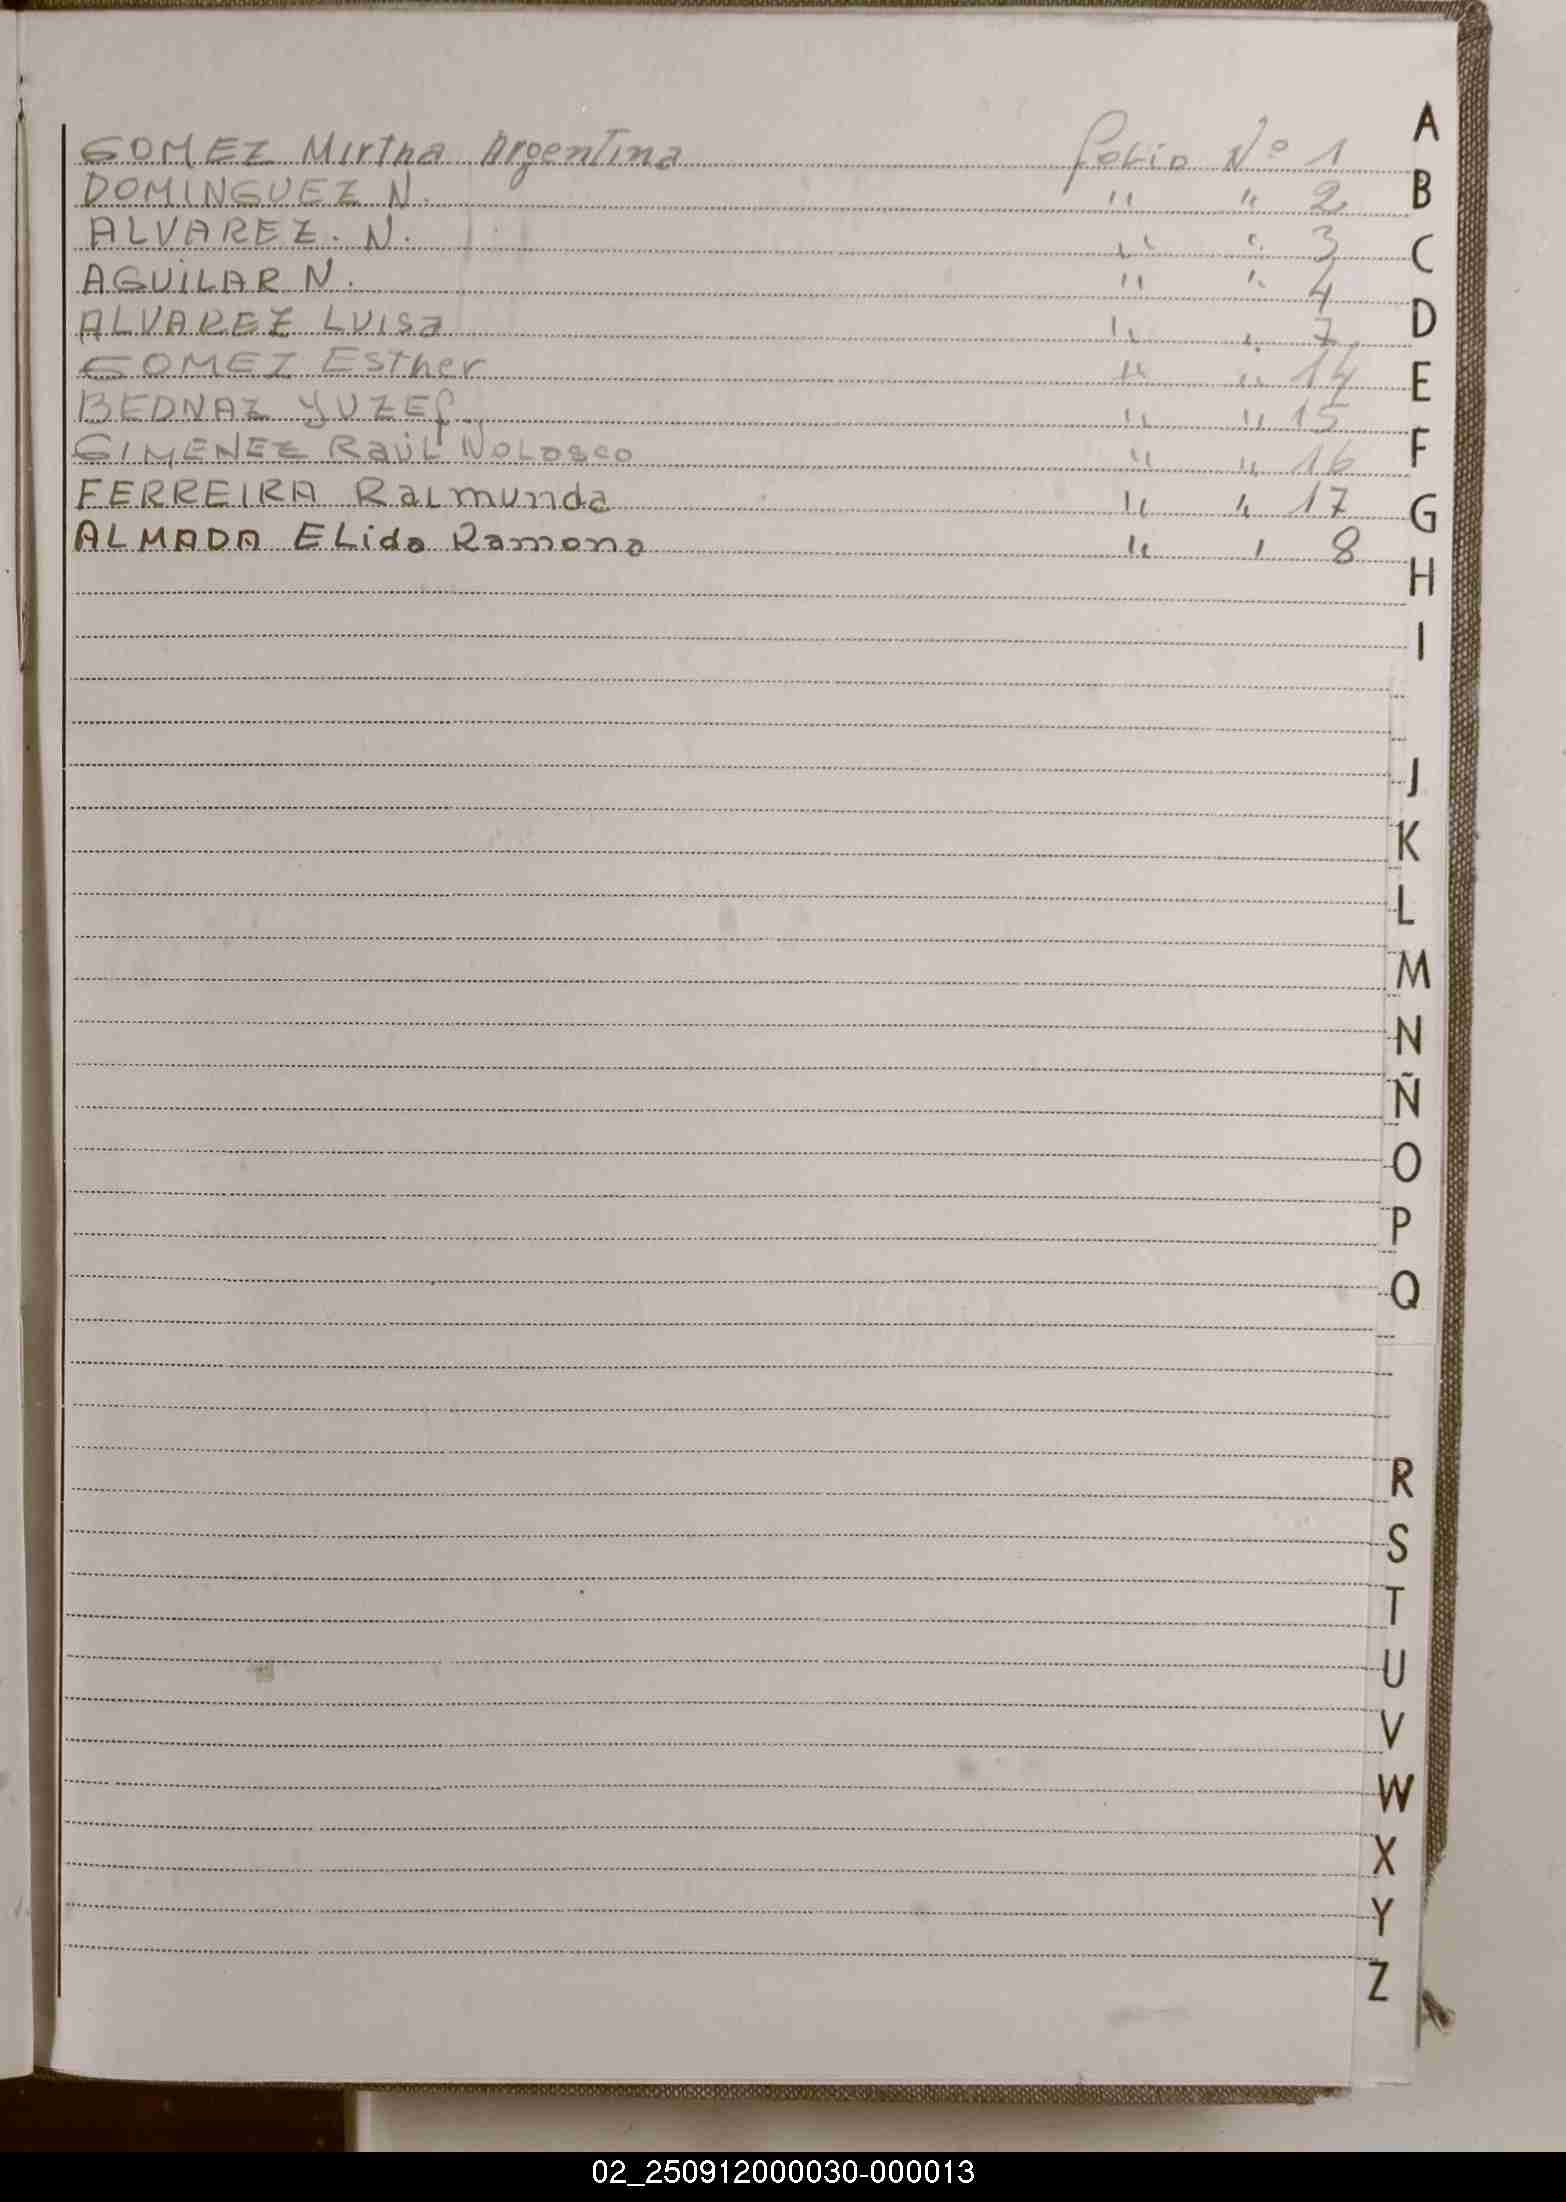 GOMEZ Mirtha Argentina folio Nº 1
DOMINGUEZ N. " " 2
ALVAREZ. N. " " 3
AGUILAR N. " " 4
ALVAREZ LUISA " " 7
GOMEZ Esther " " 14
BEDNAZ YUZEf. " " 15
GIMENEZ RaúL NOLOSCO " " 16
FERREIRA Raimunda " " 17
ALMADA ELida Ramona " " 8
A
B
C
D
E
F
G
H
I
J
K
L
M
N
Ñ
O
P
Q
R
S
T
U
V
W
X
Y
Z
02_250912000030-000013